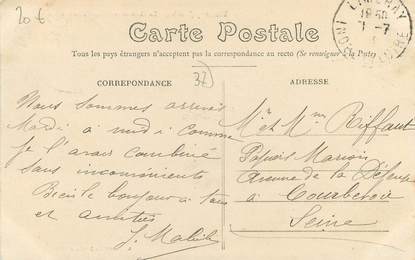 20 €
LIMERAY
18 30
7 - 7
INDRE
Carte Postale
Tous les pays étrangers n'acceptent pas la correspondance au recto (Se renseigner à la Poste)
CORREPONDANCE
37
ADRESSE
Nous sommes arrivés
Mardi à midi comme
je l'avais combiné
sans inconvénients
Bien le bonjour à tous
et amitiés
Mr et Mme Riffaut
Avenue de la Défense
à Courbevoie
Seine